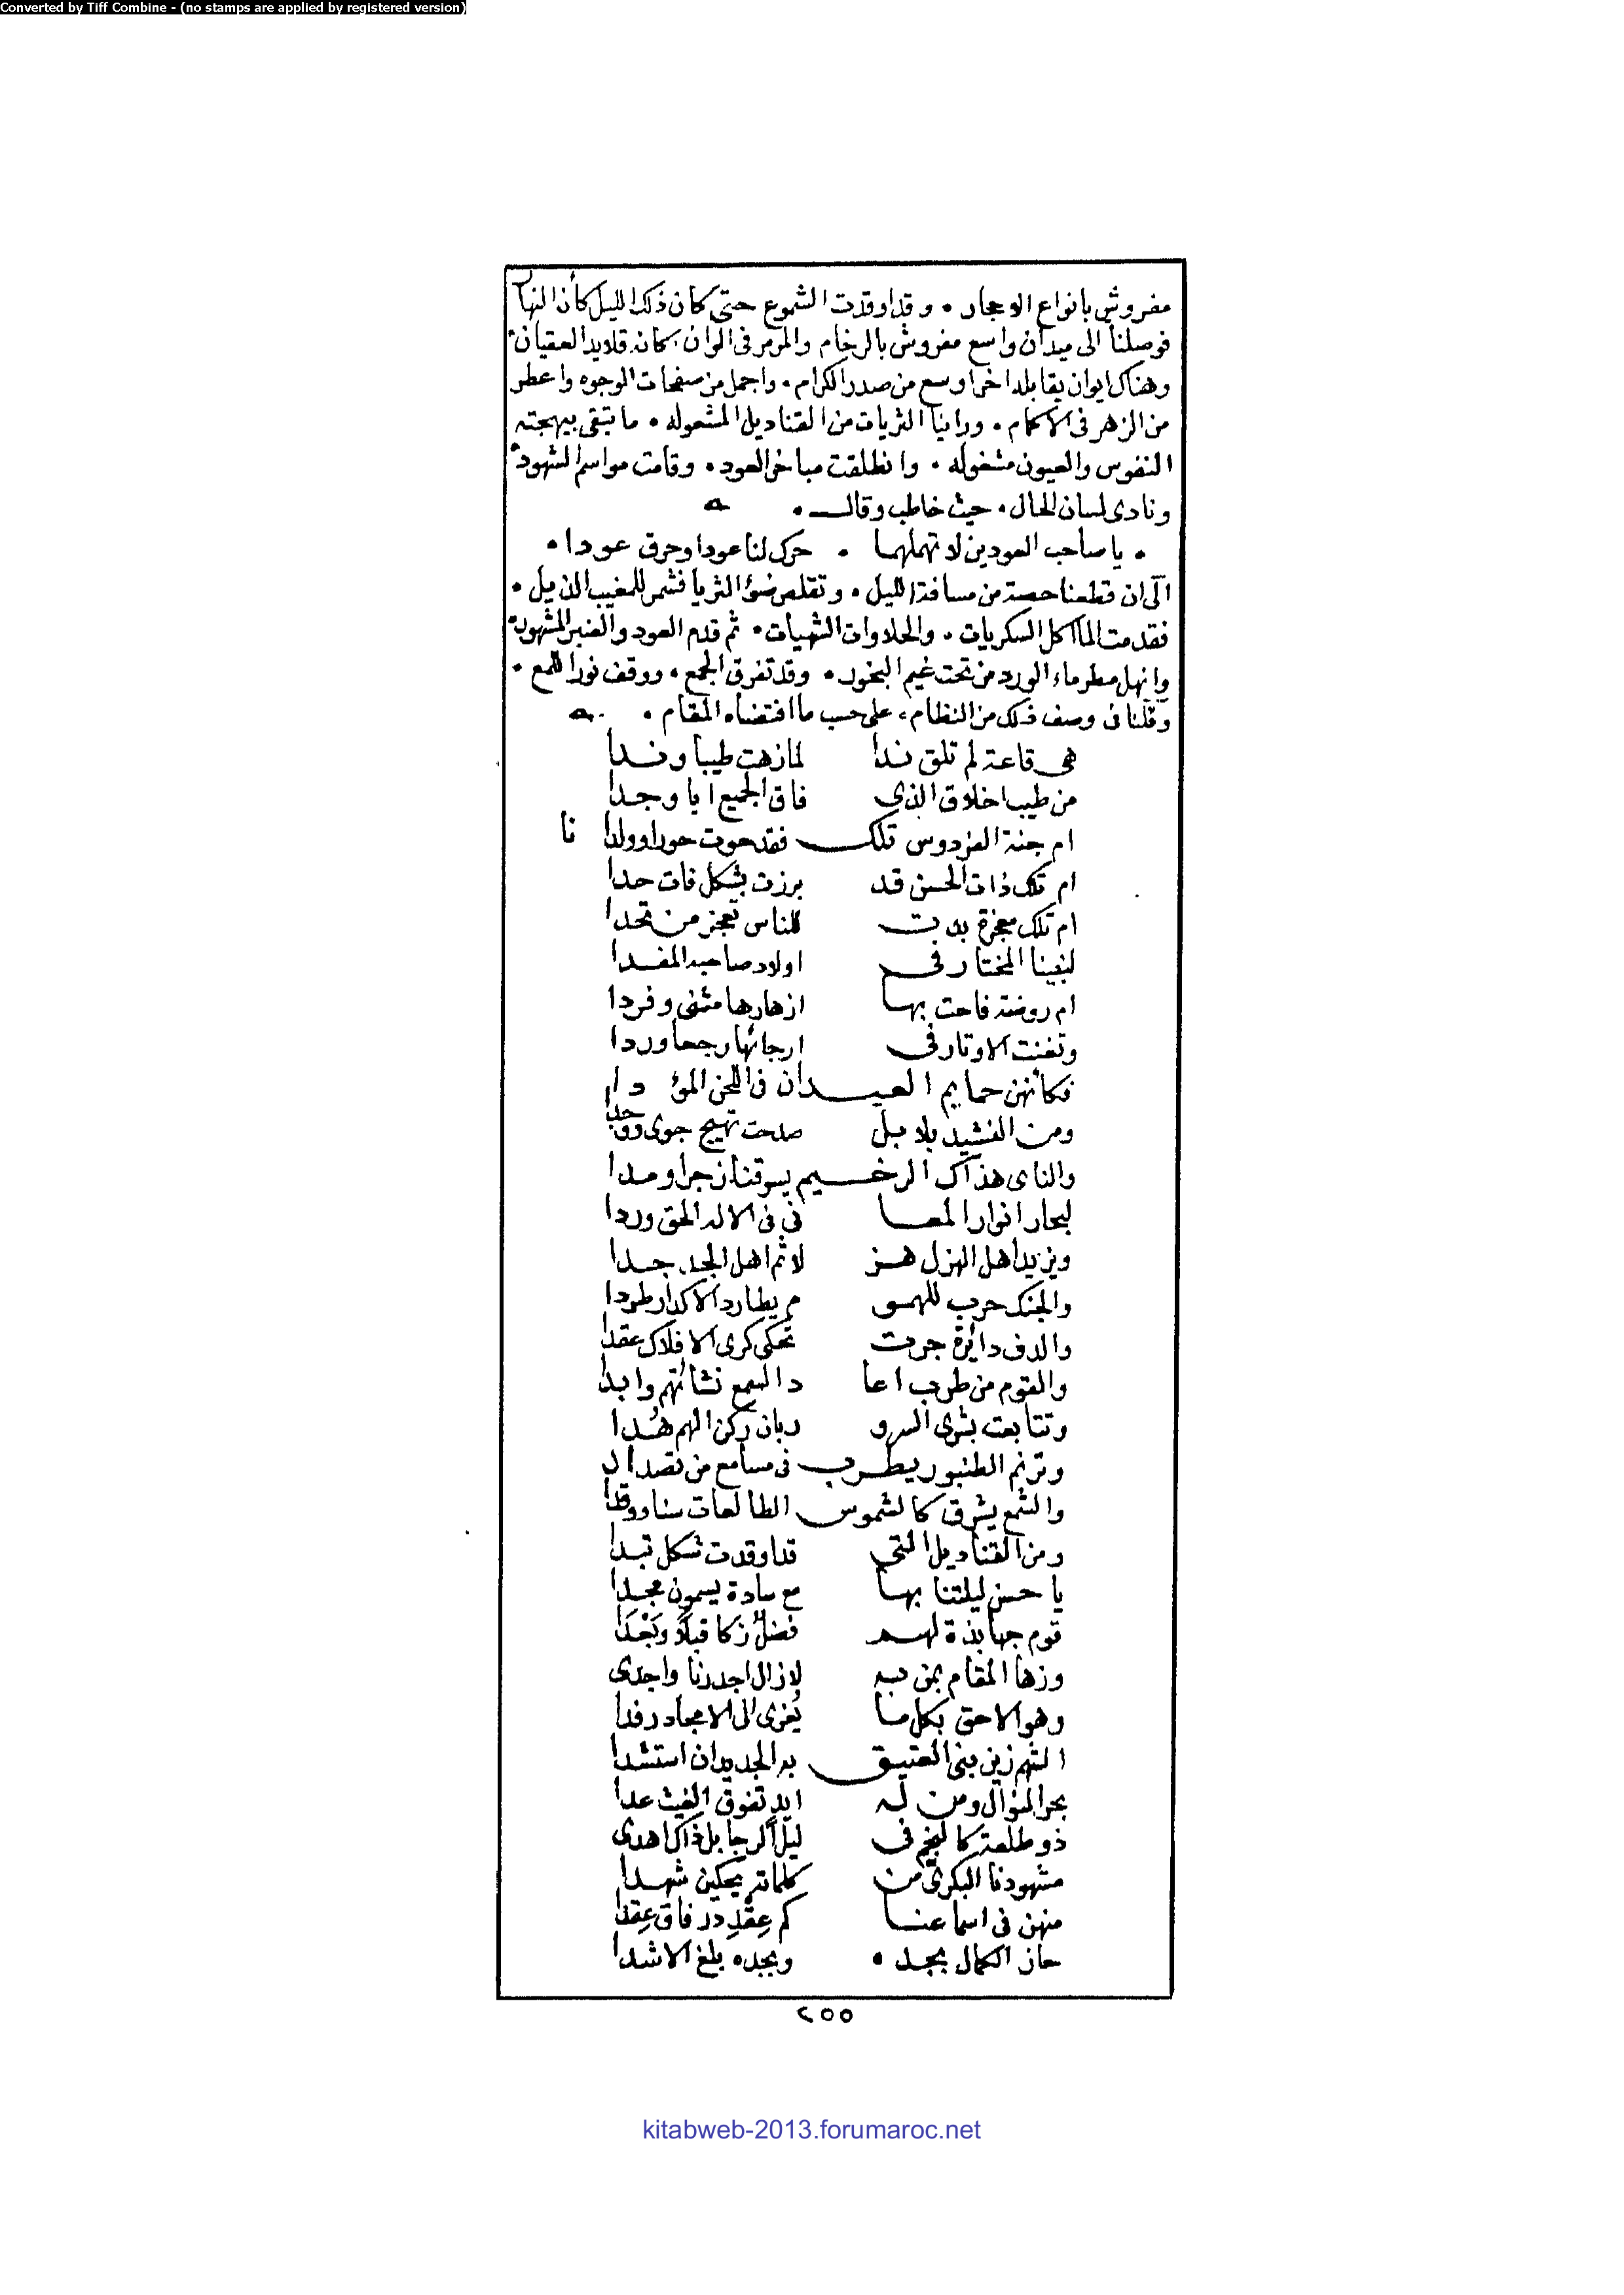 Converted by Tiff Combine - (no stamps are applied by registered version)
مفروش بانواع الاحجار • وقد اوقدت الشموع حتى كان ذلك الليل كأنه النهار
فوصلنا الى ميدان واسع مفروش بالرخام والمرمر فى الوان • كانه قلايد العقيان •
وهناك ايوان يقابله اخر اوسع من صدر الكرام • واجمل من صفحات الوجوه واعطر
من الزهر فى الاكمام • وراينا الثريات من القناديل المشعوله • ما تبقى ببهجته
النفوس والعيون مشغوله • وانطلقت مباخر العود • وقامت مواسم الشهود •
ونادى لسان الحال • حيث خاطب وقال •
• يا صاحب العودين لا تهملهما • حرك لنا عودا وحرق عودا •
الى ان قطعنا حصة من مسافة الليل • وتقلص ضوء الثريا فشمر للمغيب الذيل •
فقدمت المآكل السكريات • والحلاوات الشهيات • ثم قدم العود والعنبر المشهود •
وانهل مطر ماء الورد من تحت غيم البخور • وقد تفرق الجمع • ووقف نور اللمع •
وقلنا فى وصف ذلك من النظام • على حسب ما اقتضاه المقام •
هى قاعة لم تلق ندا لما زهت طيبا وندا
من طيب اخلاق الذى فاق الجميع ابا وجدا
ام جنة الفردوس تلك فقد حوت حورا وولدا نا
ام تلك ذات الحسن قد برزت بشكل فات حدا
ام تلك معجزة بدت للناس تعجز من تحدا
لنبينا المختار فى اولاد صاحبه المفدا
ام روضة فاحت بها ازهارها مثنى وفردا
وتغنت الاوتار فى ارجائها رجعا وردا
فكأنهن حمايم العيدان فى اللحن المؤ دا
ومن النشيد بلابل صدحت تهيج جوى ووجدا
والناى هذاك الرخيم يسوقنا زجرا ومدا
لبحار انوار المعا نى فى الاله الحق وردا
ويزيد اهل الهزل هز لا ثم اهل الجد جدا
والجنك حرب للهمو م يطارد الاكدار طردا
والدف دائرة جرت تحكى كرى الافلاك عقدا
والقوم من طرب اعا د السمع نشاتهم وابدا
وتتابعت بشرى السرو ر بان ركن الهم هُدا
وترنم الطنبور يطرب فى مسامع من تصدا
والشمع يشرق كالشموس الطالعات سنا ووقدا
ومن القناديل التى قد اوقدت شكل تبدا
يا حسن ليلتنا بها مع سادة يسمون مجدا
قوم جهابذة لهم فضل زكا قبلا وبَعْدَا
وزها المقام بمن به لا زال اجدرنا واجدى
وهو الاحق بكل ما يُعزى الى الامجاد رفدا
الشهم زين بنى العتيق به الجديدان استشدا
بحر النوال ومن له ايدٍ تفوق الغيث عدا
ذو طلعة كالنجم فى ليل الرجا بل ذاك اهدى
مشهودنا البكرى من كلماته يحكين شهدا
منهن فى اسماعنا كم عِقْدِ در فاق عِقدا
حاز الكمال بجده • وبجده بلغ الاشدا
٢٥٥
kitabweb-2013.forumaroc.net